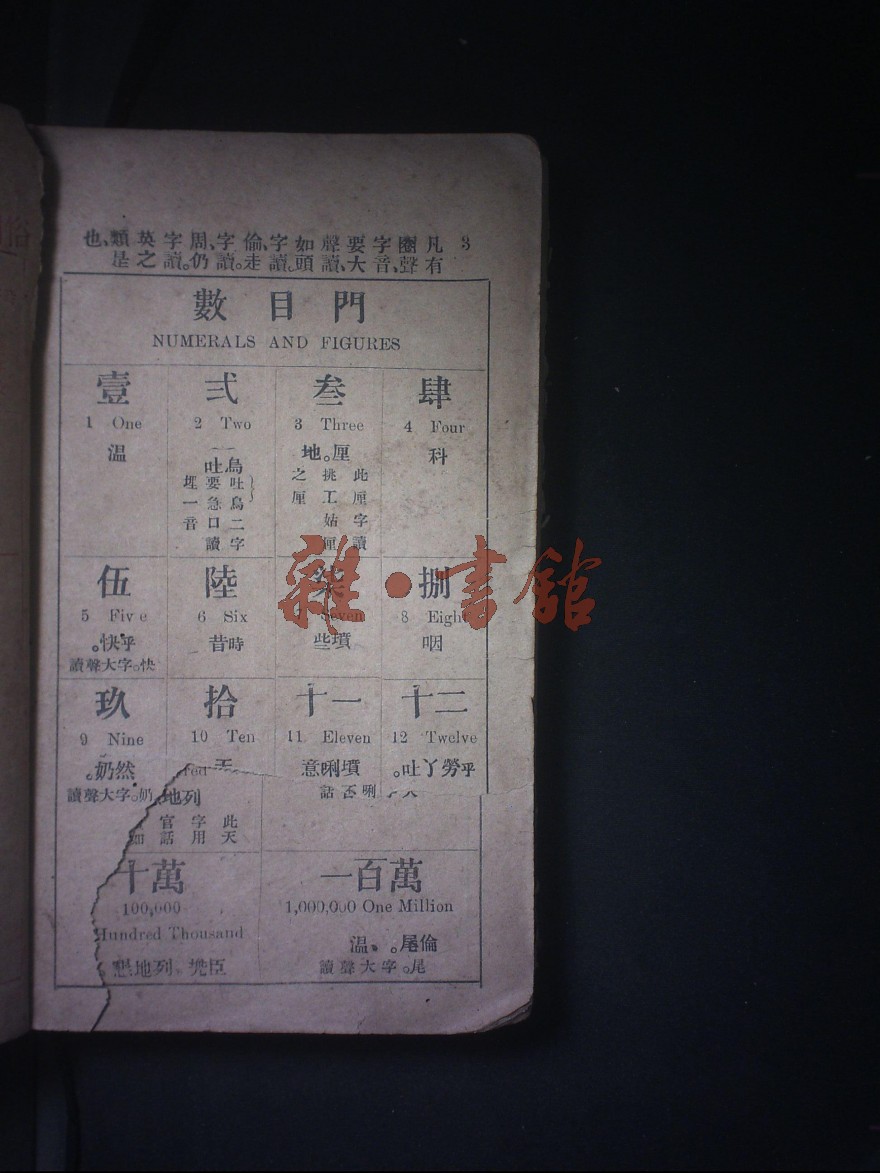 3
凡有圈聲、字音要大聲、讀如頭。字讀倫、走。字讀周、仍。字讀英、之類是也、
數目門
NUMERALS AND FIGURES
壹
1 One
溫
弍
2 Two
吐烏
吐烏二字
要急口讀
埋一音
叁
3 Three
地。厘
此厘字讀
挑工姑厘
之厘
肆
4 Four
科
伍
5 Five
。快乎
快。字大聲讀
陸
6 Six
昔時
柒
7 Seven
些墳
捌
8 Eight
咽
玖
9 Nine
。奶然
奶。字大聲讀
拾
10 Ten
天
十一
11 Eleven
意唎墳
十二
12 Twelve
吐。丫勞乎
地列
此天
字用
官話
十萬
100,000
Hundred Thousand
懇地列
一百萬
1,000,000 One Million
溫、。尾倫
尾。字大聲讀
雜·書館